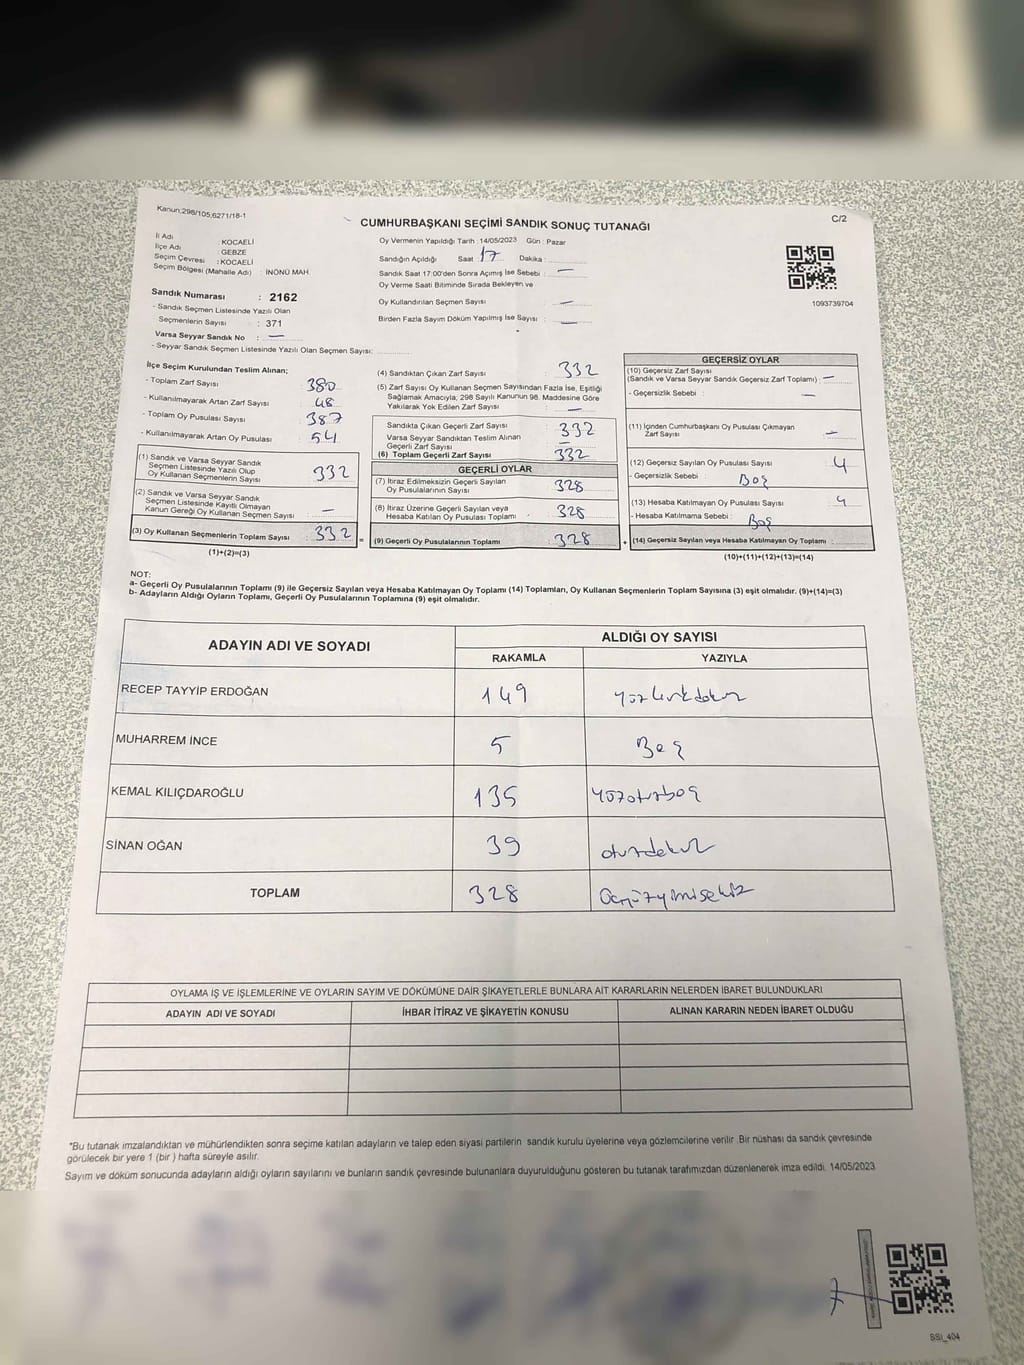 Kanun;298/105,6271/18-1
C/2
CUMHURBAŞKANI SEÇİMİ SANDIK SONUÇ TUTANAĞI
İl Adı : KOCAELİ
İlçe Adı : GEBZE
Seçim Çevresi : KOCAELİ
Seçim Bölgesi (Mahalle Adı) : İNÖNÜ MAH.
Sandık Numarası : 2162
- Sandık Seçmen Listesinde Yazılı Olan
Seçmenlerin Sayısı : 371
Varsa Seyyar Sandık No : —
- Seyyar Sandık Seçmen Listesinde Yazılı Olan Seçmen Sayısı:
Oy Vermenin Yapıldığı Tarih : 14/05/2023 Gün : Pazar
Sandığın Açıldığı Saat 17 Dakika :
Sandık Saat 17:00'den Sonra Açımış İse Sebebi : —
Oy Verme Saati Bitiminde Sırada Bekleyen ve
Oy Kullandırılan Seçmen Sayısı —
Birden Fazla Sayım Döküm Yapılmış İse Sayısı : —
1093739704
İlçe Seçim Kurulundan Teslim Alınan;
- Toplam Zarf Sayısı 380
- Kullanılmayarak Artan Zarf Sayısı 48
- Toplam Oy Pusulası Sayısı 387
- Kullanılmayarak Artan Oy Pusulası 54
(1) Sandık ve Varsa Seyyar Sandık
Seçmen Listesinde Yazılı Olup
Oy Kullanan Seçmenlerin Sayısı 332
(2) Sandık ve Varsa Seyyar Sandık
Seçmen Listesinde Kayıtlı Olmayan
Kanun Gereği Oy Kullanan Seçmen Sayısı —
(3) Oy Kullanan Seçmenlerin Toplam Sayısı 332 =
(1)+(2)=(3)
(4) Sandıktan Çıkan Zarf Sayısı : 332
(5) Zarf Sayısı Oy Kullanan Seçmen Sayısından Fazla İse, Eşitliği
Sağlamak Amacıyla; 298 Sayılı Kanunun 98. Maddesine Göre
Yakılarak Yok Edilen Zarf Sayısı : —
Sandıkta Çıkan Geçerli Zarf Sayısı 332
Varsa Seyyar Sandıktan Teslim Alınan
Geçerli Zarf Sayısı —
(6) Toplam Geçerli Zarf Sayısı 332
GEÇERLİ OYLAR
(7) İtiraz Edilmeksizin Geçerli Sayılan
Oy Pusulalarının Sayısı 328
(8) İtiraz Üzerine Geçerli Sayılan veya
Hesaba Katılan Oy Pusulası Toplamı 328
(9) Geçerli Oy Pusulalarının Toplamı 328 +
GEÇERSİZ OYLAR
(10) Geçersiz Zarf Sayısı
(Sandık ve Varsa Seyyar Sandık Geçersiz Zarf Toplamı) : —
- Geçersizlik Sebebi : —
(11) İçinden Cumhurbaşkanı Oy Pusulası Çıkmayan
Zarf Sayısı —
(12) Geçersiz Sayılan Oy Pusulası Sayısı 4
- Geçersizlik Sebebi : Boş
(13) Hesaba Katılmayan Oy Pusulası Sayısı 4
- Hesaba Katılmama Sebebi : Boş
(14) Geçersiz Sayılan veya Hesaba Katılmayan Oy Toplamı
(10)+(11)+(12)+(13)=(14)
NOT:
a- Geçerli Oy Pusulalarının Toplamı (9) ile Geçersiz Sayılan veya Hesaba Katılmayan Oy Toplamı (14) Toplamları, Oy Kullanan Seçmenlerin Toplam Sayısına (3) eşit olmalıdır. (9)+(14)=(3)
b- Adayların Aldığı Oyların Toplamı, Geçerli Oy Pusulalarının Toplamına (9) eşit olmalıdır.
ADAYIN ADI VE SOYADI ALDIĞI OY SAYISI
RAKAMLA YAZIYLA
RECEP TAYYİP ERDOĞAN 149 yüzkırkdokuz
MUHARREM İNCE 5 Beş
KEMAL KILIÇDAROĞLU 135 yüzotuzbeş
SİNAN OĞAN 39 otuzdokuz
TOPLAM 328 üçyüzyirmisekiz
OYLAMA İŞ VE İŞLEMLERİNE VE OYLARIN SAYIM VE DÖKÜMÜNE DAİR ŞİKAYETLERLE BUNLARA AİT KARARLARIN NELERDEN İBARET BULUNDUKLARI
ADAYIN ADI VE SOYADI İHBAR İTİRAZ VE ŞİKAYETİN KONUSU ALINAN KARARIN NEDEN İBARET OLDUĞU
*Bu tutanak imzalandıktan ve mühürlendikten sonra seçime katılan adayların ve talep eden siyasi partilerin sandık kurulu üyelerine veya gözlemcilerine verilir. Bir nüshası da sandık çevresinde
görülecek bir yere 1 (bir ) hafta süreyle asılır.
Sayım ve döküm sonucunda adayların aldığı oyların sayılarını ve bunların sandık çevresinde bulunanlara duyurulduğunu gösteren bu tutanak tarafımızdan düzenlenerek imza edildi. 14/05/2023
SSI_404